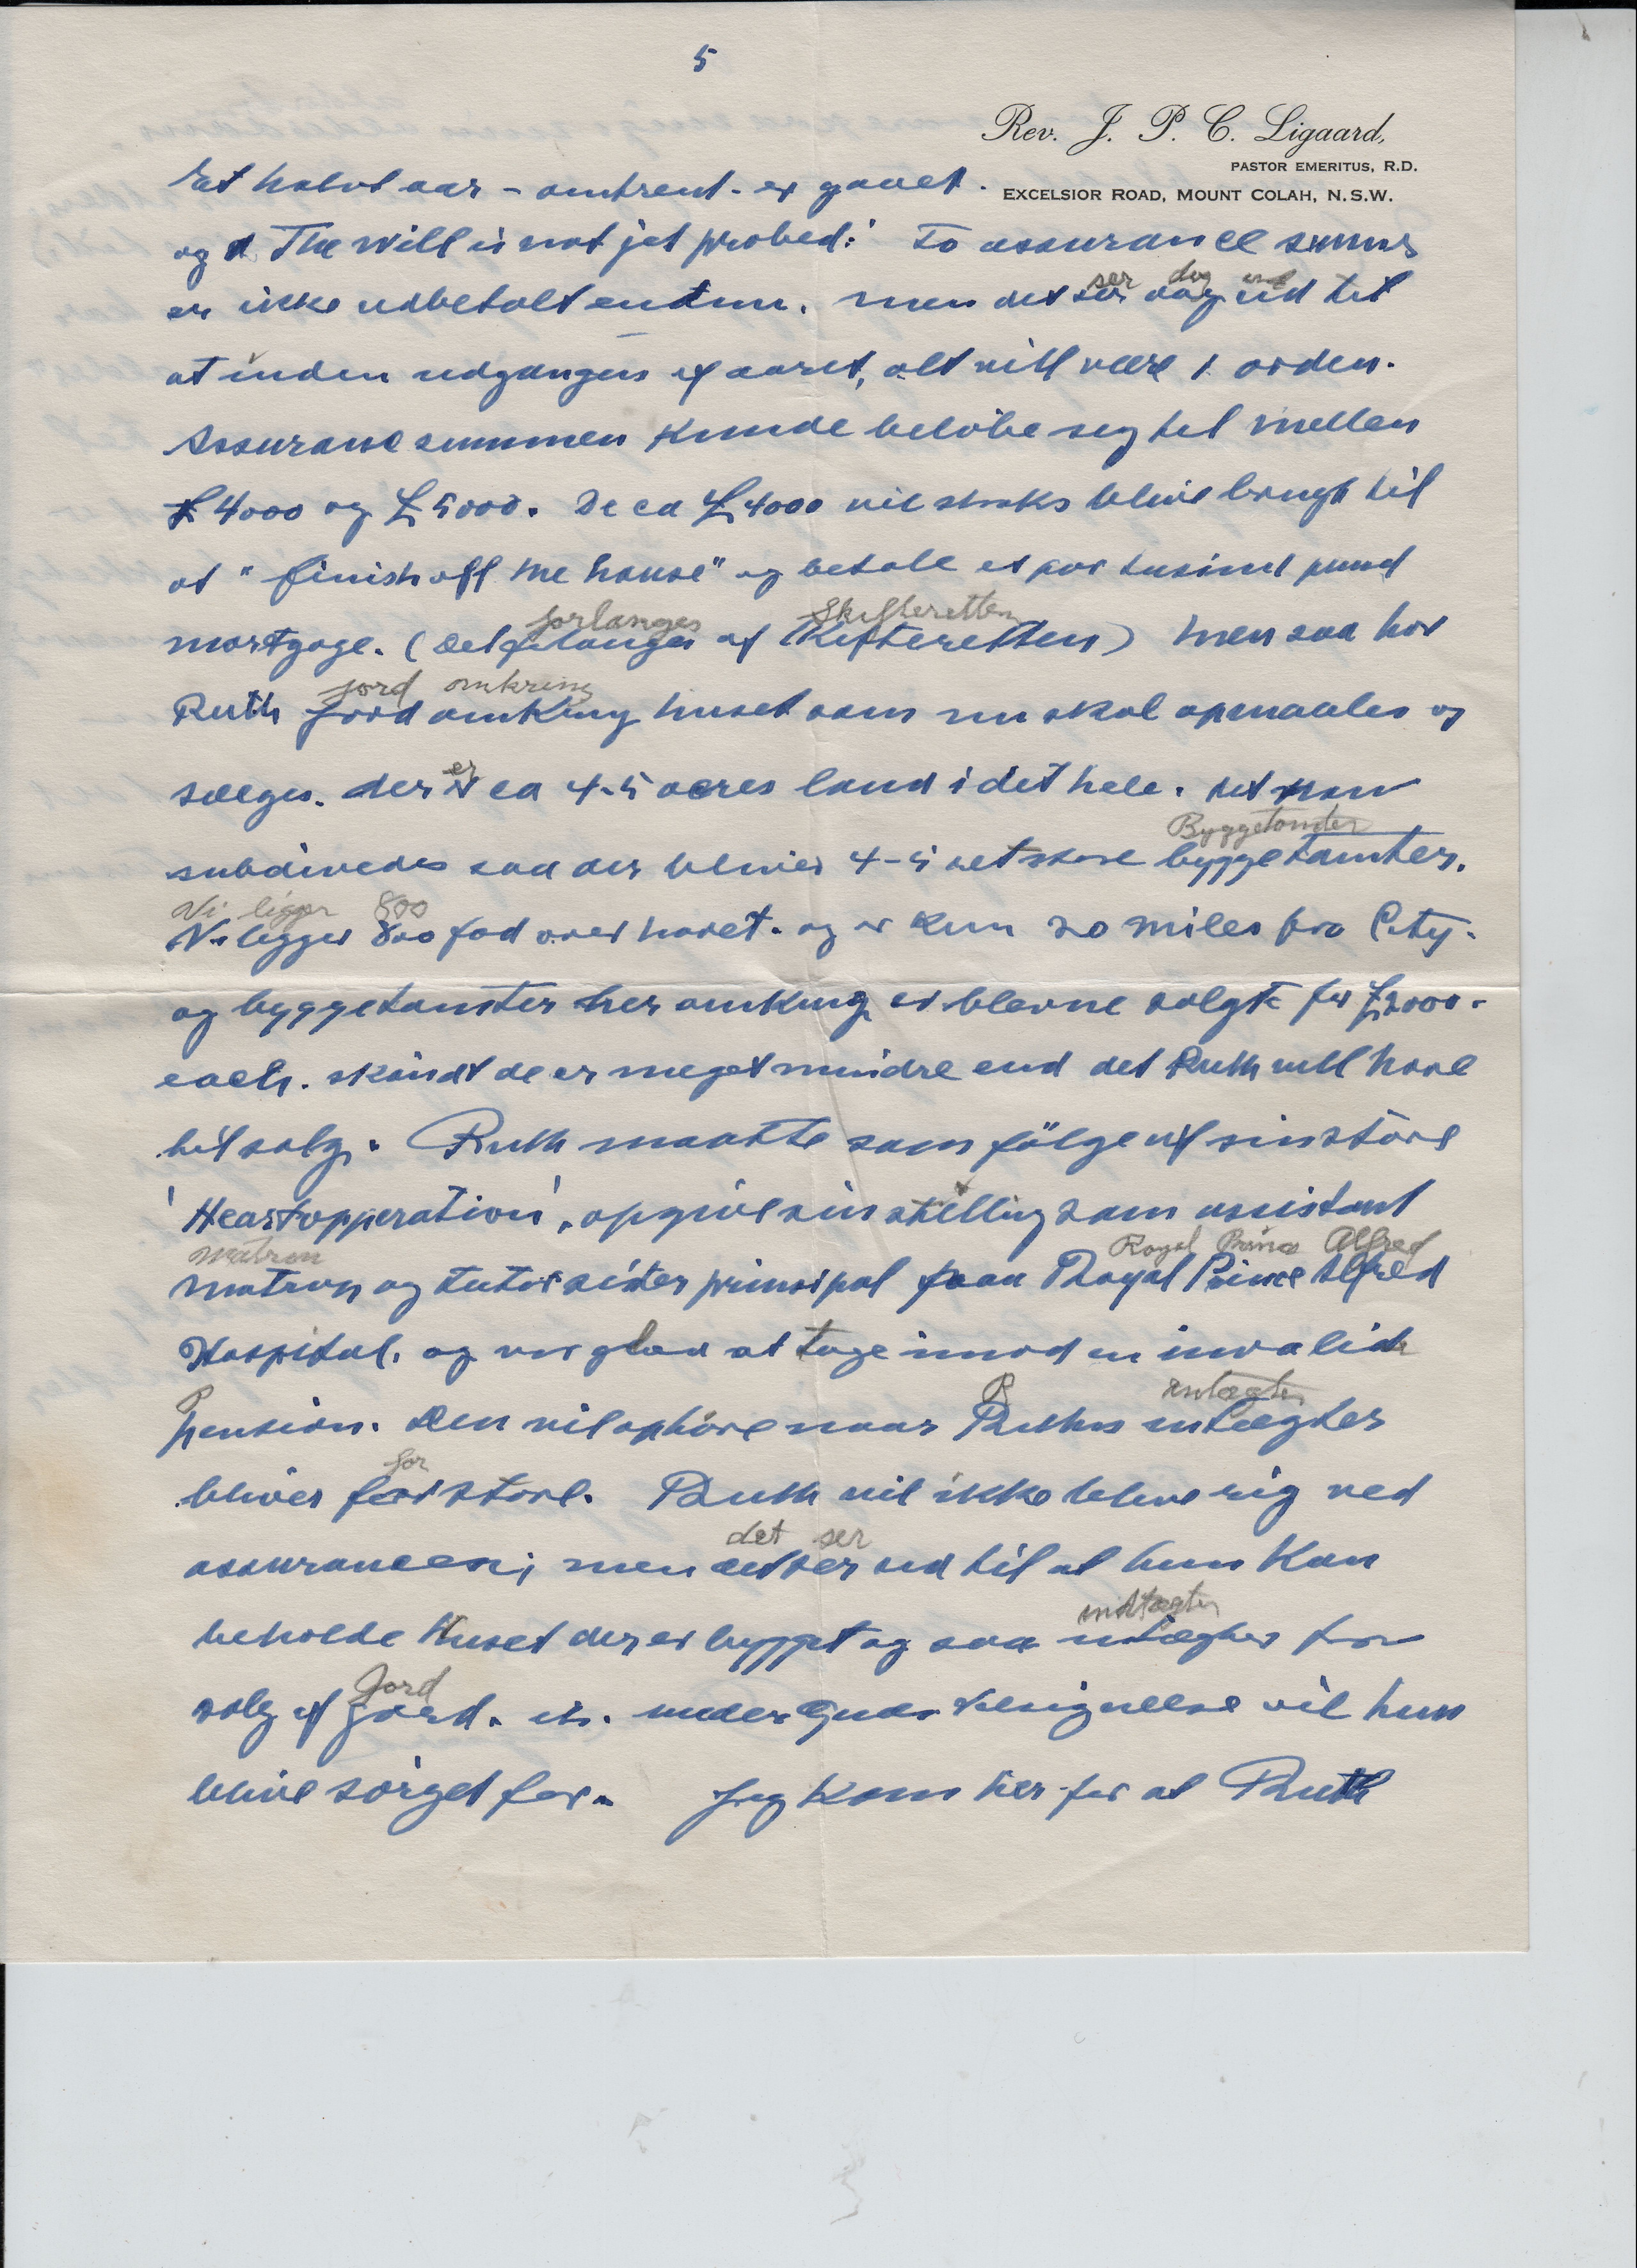 5
Rev. J. P. C. Ligaard,
PASTOR EMERITUS, R.D.
EXCELSIOR ROAD, MOUNT COLAH, N.S.W.
Et halvt aar - omtrent - er gaaet.
og The will is not jet probed.' To assurance summer
ser dog ud
er ikke udbetalt endnu. men det ser dog ud til
at inden udgangen af aaret, alt vill være i orden.
Assurance summen kunde belöbe seg til mellen
£4000 og £5000. De ca £4000 vil straks blive brugt til
at "finish off the house" og betale et par tusind pund
forlanges Skifteretten
mortgage. (det forlanges af Skifteretten) Men saa har
jord omkring
Ruth jord omkring huset som nu skal opmaales og
er
sælges. der er ca 4-5 acres land i det hele. det kan
Byggetomter
subdivedes saa der bliver 4-5 ret store byggetomter.
Vi ligger 800
Vi ligger 800 fod over havet. og er kun 20 miles fra City.
og byggetomter her omkring er blevne solgte for £2000.
each. sköndt de er meget mindre end det Ruth vill have
til salg. Ruth maatte som fölge af sin störe
'Heartopperation', opgive sin stilling som assistant
matron Royal Prince Alfred
matron og tutor sister principal paa Royal Prince Alfred
Hospital. og var glad at tage imod en invalid
P R
pension. Den vil ophöre naar Ruths intægter
for
bliver for store. Ruth vil ikke blive rig ved
det ser
assurancen; men det ser ud til at hun kan
indtægter
beholde Huset der er bygget og saa intægter fra
Jord
salg af jord. under Guds Velsignelse vil hun
blive sörget for. Jeg kom her for at Ruth